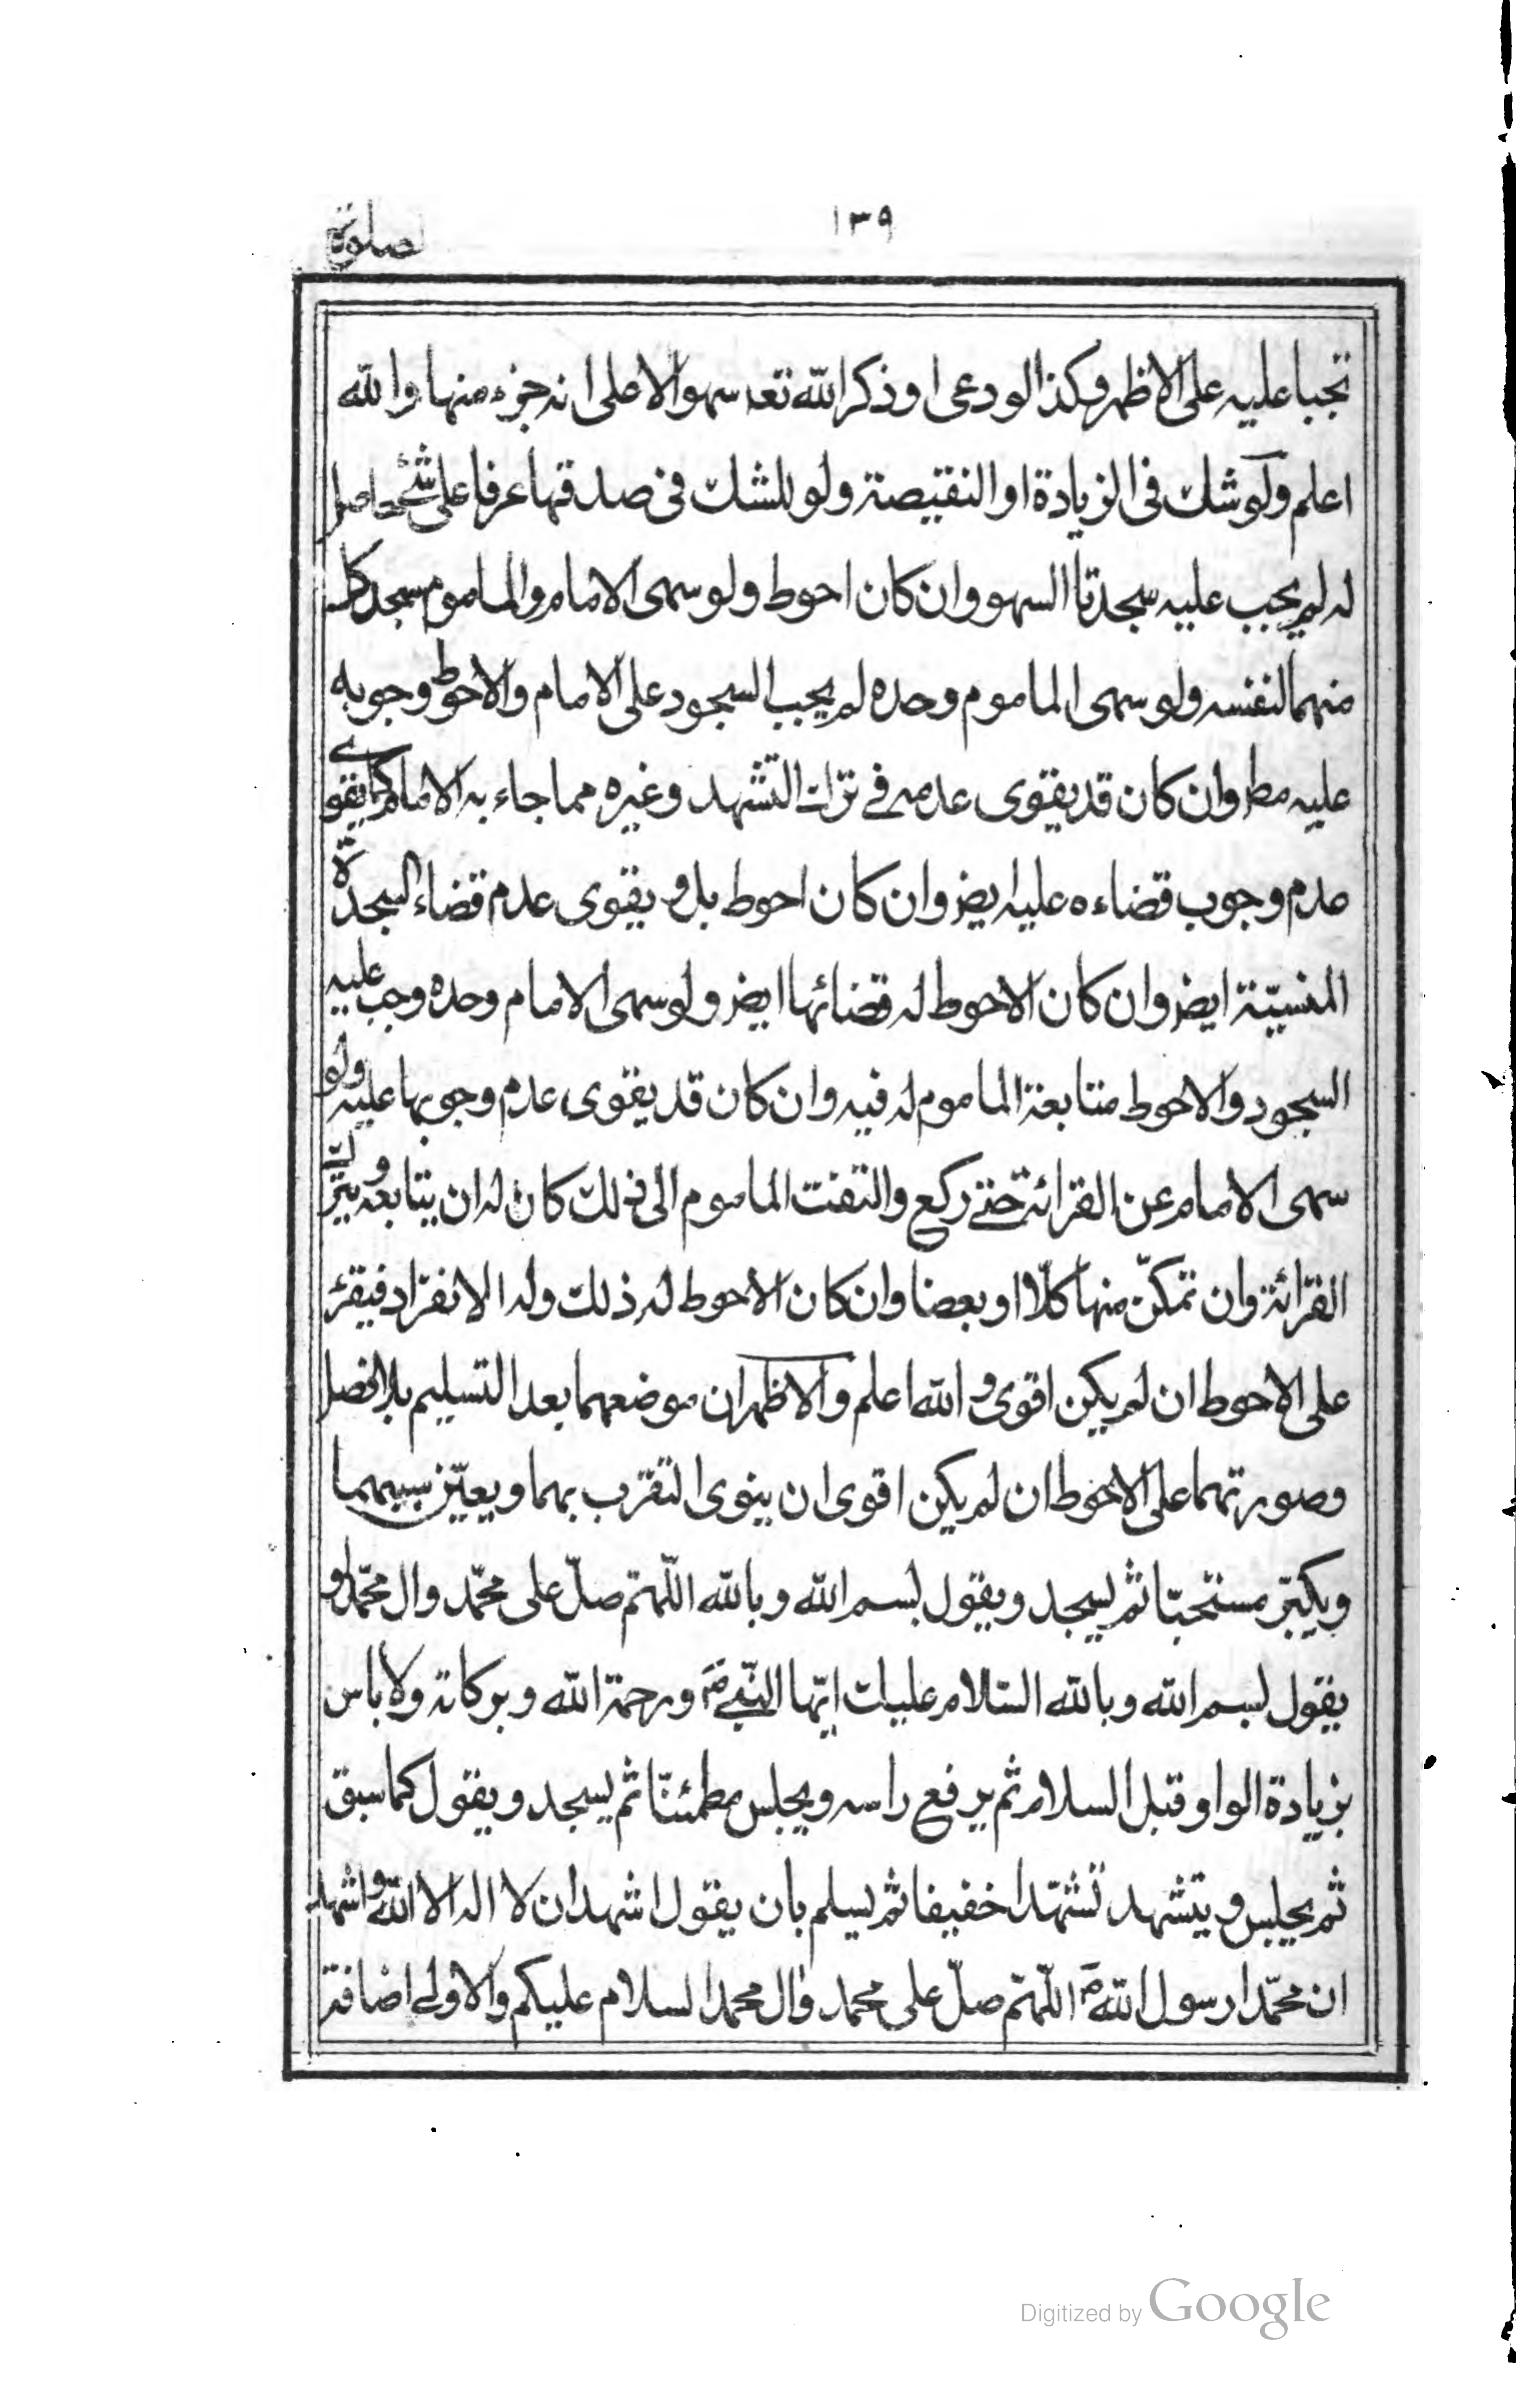 ١٣٩
صلوة
تجبا عليه على الاظهر وكذا لو دعى او ذكر الله تعه سهوا لا على انه جزء منها والله
اعلم ولو شك فى الزيادة او النقيصة ولو للشك فى صدقها عرفا على شئ حاصل
له لم يجب عليه سجدتا السهو وان كان احوط ولو سهى الامام والماموم سجد كل
منهما لنفسه ولو سهى الماموم وحده لم يجب السجود على الامام والاحوط وجوبه
عليه مط وان كان قد يقوى عدمه فى ترك التشهد وغيره مما جاء به الامام كما يقوى
عدم وجوب قضاءه عليه ايض وان كان احوط بل ويقوى عدم قضاء السجدة
المنسيّة ايض وان كان الاحوط له قضائها ايض ولو سهى الامام وحده وجب عليه
السجود والاحوط متابعة الماموم له فيه وان كان قد يقوى عدم وجوبها عليه ولو
سهى الامام عن القرائة حتى ركع والتفت الماموم الى ذلك كان له ان يتابعه ويترك
القرائة وان تمكّن منها كلّا او بعضا وان كان الاحوط له ذلك وله الانفراد فيقرئ
على الاحوط ان لم يكن اقوى والله اعلم والاظهر ان موضعهما بعد التسليم بلا فصل
وصورتهما على الاحوط ان لم يكن اقوى ان ينوى التقرب بهما ويعيّن سببهما
ويكبّر مستحبّا ثم يسجد ويقول بسم الله وبالله اللّهمّ صلّ على محمّد وال محمّد او
يقول بسم الله وبالله السّلام عليك ايّها النّبى ص ورحمة الله وبركاته ولا باس
بزيادة الواو قبل السلام ثم يرفع راسه ويجلس مطمئنّا ثم يسجد ويقول كما سبق
ثم يجلس ويتشهد تشهّدا خفيفا ثم يسلم بان يقول اشهد ان لا اله الا الله واشهد
ان محمّدا رسول الله ص اللّهمّ صلّ على محمد وال محمد السلام عليكم والاولى اضافة
Digitized by Google